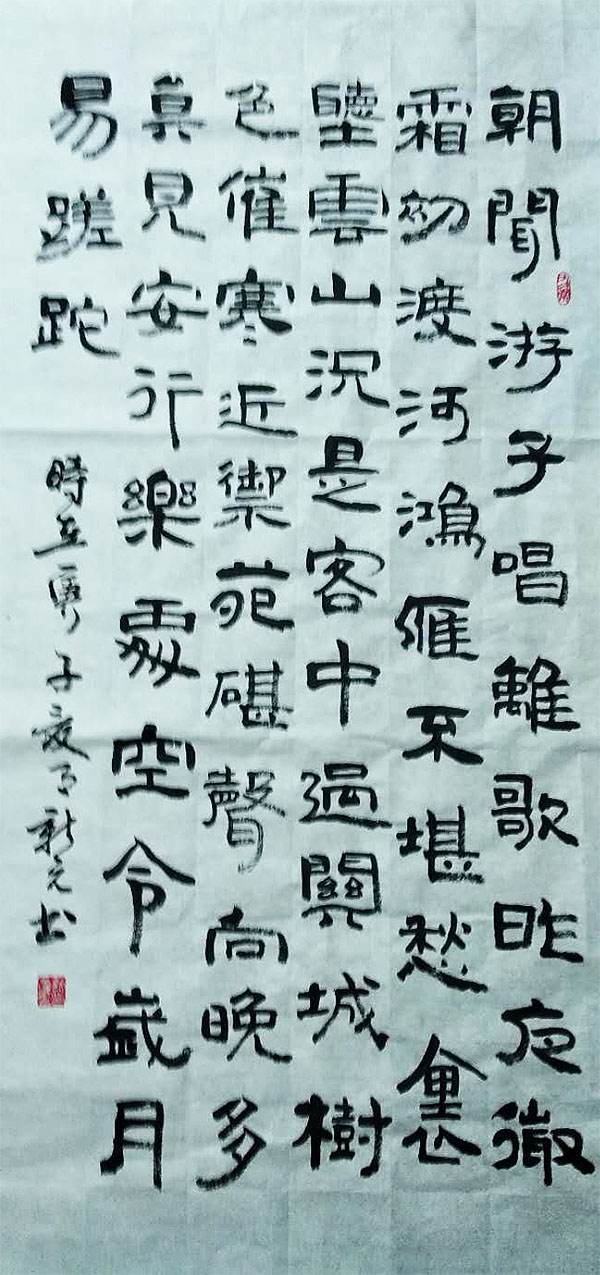 朝聞游子唱離歌昨夜微
霜初渡河鴻雁不堪愁裏
聽雲山況是客中過關城樹
色催寒近禦苑碪聲向晚多
真見安行樂處空令歲月
易蹉跎
時在子夏新元书